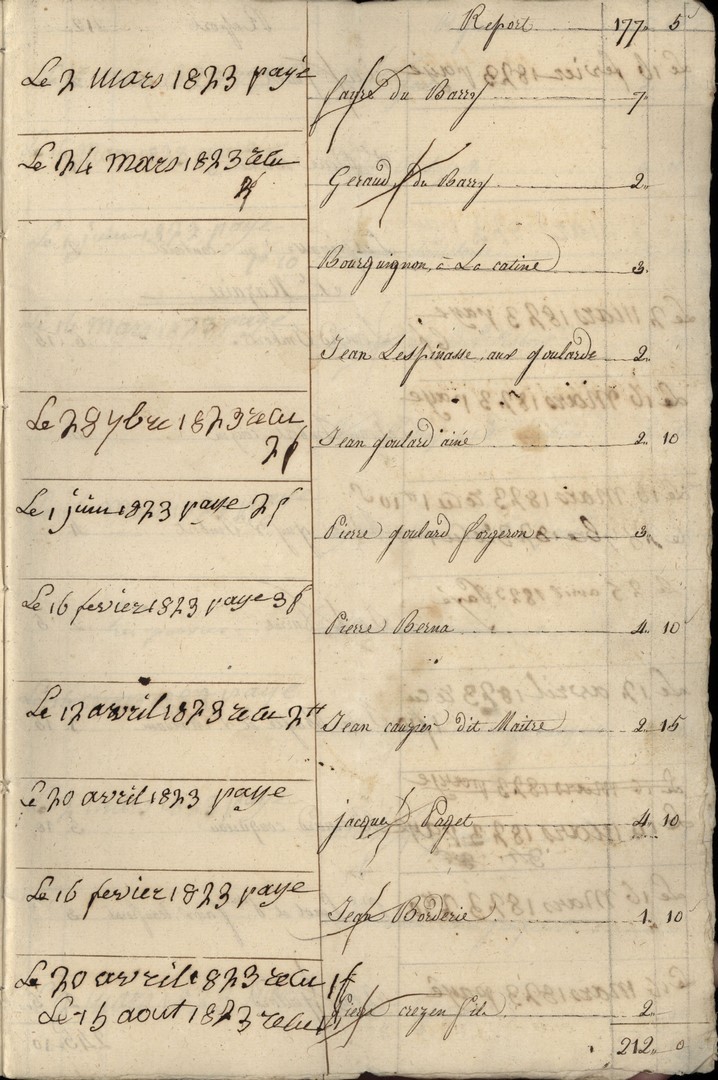 Report 177. 5
Le 2 mars 1823 payé
fayre du Barry 7.
Le 24 mars 1823 recu
Geraud du Barry 2.
Bourguignon, à La catine 3.
Jean Lespinasse, aux goularde 2.
Le 28 9bre 1823 recu
2f
Jean goulard ainé 2. 10
Le 1 juin 1823 paye 2f
Pierre goulard forgeron 3.
Le 16 fevier 1823 paye 3f
Pierre Berna 4. 10
Le 12 avril 1823 recu 2
Jean cauzier dit Maitre 2. 15
Le 20 avril 1823 paye
jacque Paget 4. 10
Le 16 fevier 1823 paye
Jean Borderie 1. 10
Le 20 avril 1823 recu 1f
Le 15 aout 1823 recu 1f
Pierre crezen fils 2.
212. 0